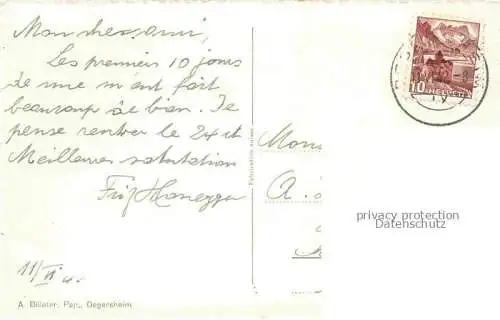 Mon cher ami,
Les premiers 10 jours
de cure m'ont fait
beaucoup de bien. Je
pense rentrer le 24 et
Meilleures salutation
Fritz Honegger
Mons
A.
11/VI 4
A. Billeter, Pap., Degersheim
10 HELVETIA
privacy protection
Datenschutz